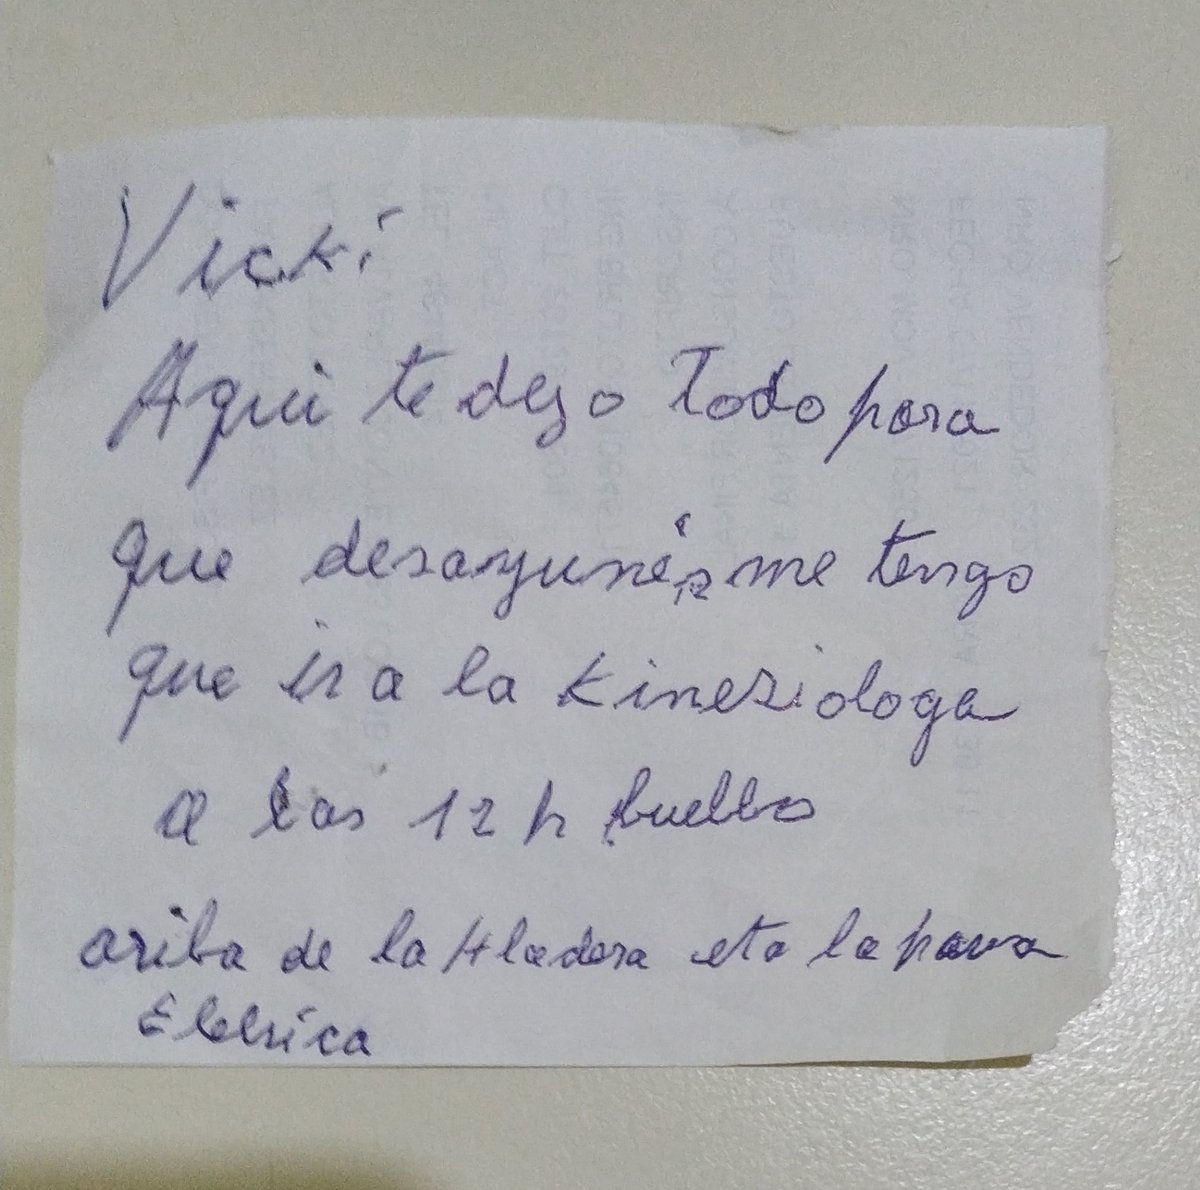 Vicki
Aqui te dejo Todo para
que desayunés me tengo
que ir a la kineziologa
a las 12 h buelbo
ariba de la Hladera eta la pava
Eletrica